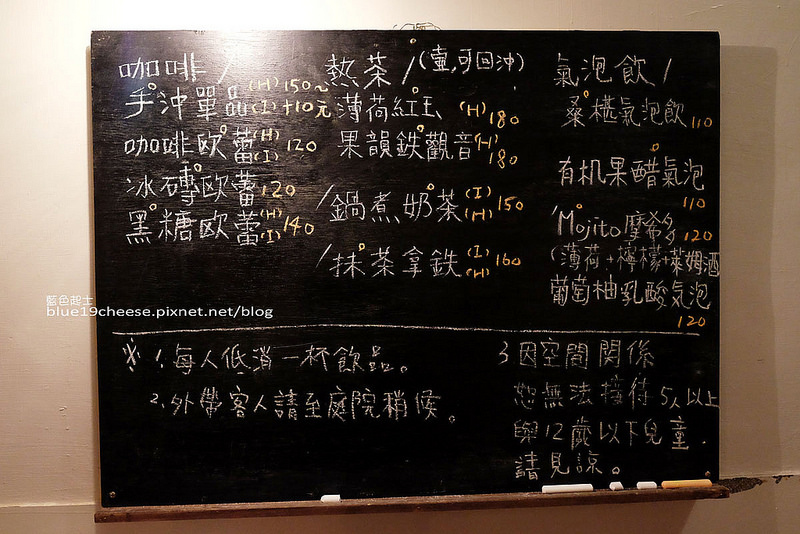 咖啡/
手沖單品(H)150~
(I)+10元
咖啡欧蕾(H)(I)120
冰磚欧蕾120
黑糖欧蕾(H)(I)140
熱茶/(壺,可回沖)
薄荷紅玉(H)180
果韻鉄觀音(H)180
/鍋煮奶茶(I)(H)150
/抹茶拿鉄(I)(H)160
氣泡飲/
桑椹氣泡飲110
有机果醋氣泡
110
Mojito摩希多120
(薄荷+檸檬+萊姆酒
葡萄柚乳酸气泡
120
藍色起士
blue19cheese.pixnet.net/blog
※1.每人低消一杯飲品。
2.外帶客人請至庭院稍候。
3因空間關係
恕無法接待5人以上
與12歲以下兒童.
請見諒。